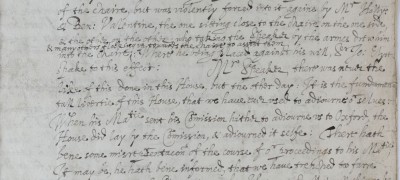 of the Chaire, but was violently forced into it againe by Mr Hollys
& Ben: Valentine, the one sitting close to the Chaire on the one side,
& the other on the other, who taking the Speaker by the armes
& many others
into the Chaire, where he being placed against his will, Sr Jo: Eliot
spake to this effect:
Mr Speaker, there was never the
like of this done in this House, but the other day: It is the fundamentall
liberties of this House, that we have ever used to adiourne our selves:
When his Matie sent his Comission hither to adiourne us to Oxford, the
House did lay by the Comission, & adiourned it selfe: There hath
bene some misrepresentacon of the course of or proceedings to his Matie
It may be, he hath bene informed, that we have trenched too farre